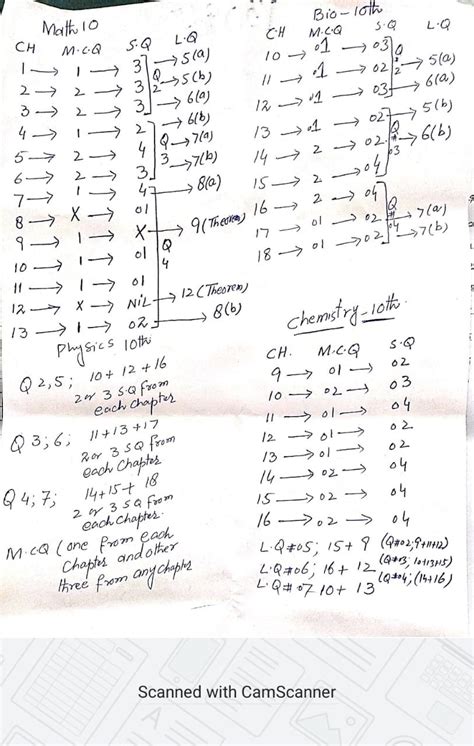 Math 10
CH M.C.Q S.Q L.Q
1 → 1 → 3 → 5(a)
2 → 2 → 3 Q 2 → 5(b)
3 → 2 → 3 → 6(a)
4 → 1 → 2 → 6(b)
5 → 2 → 4 Q 3 → 7(a)
6 → 2 → 3 → 7(b)
7 → 1 → 4 → 8(a)
8 → X → 01
9 → 1 → X → 9(Theorem)
10 → 1 → 01 Q 4
11 → 1 → 01
12 → X → Nil → 12(Theorem)
13 → 1 → 02 → 8(b)
Physics 10th
Q 2,5; 10+12+16
2 or 3 S.Q from
each chapter
Q 3;6; 11+13+17
2 or 3 SQ from
each chapter
Q 4;7; 14+15+18
2 or 3 SQ from
each chapter.
M.C.Q (one from each
Chapter and other
three from any chapter
Bio-10th
CH M.C.Q S.Q L.Q
10 → 01 → 03
11 → 01 → 02 Q 2 → 5(a)
12 → 01 → 03 → 6(a)
13 → 01 → 02 → 5(b)
14 → 2 → 02 Q # 03 → 6(b)
15 → 2 → 04
16 → 2 → 04
17 → 01 → 02 Q # 04 → 7(a)
18 → 01 → 02 → 7(b)
Chemistry-10th.
CH. M.C.Q S.Q
9 → 01 → 02
10 → 02 → 03
11 → 01 → 04
12 → 01 → 02
13 → 01 → 02
14 → 02 → 04
15 → 02 → 04
16 → 02 → 04
L.Q#05; 15+9 (Q#02;9+11+12)
L.Q#06; 16+12 (Q#03; 10+13+15)
L.Q#07 10+13 (Q#04; (14+16)
Scanned with CamScanner